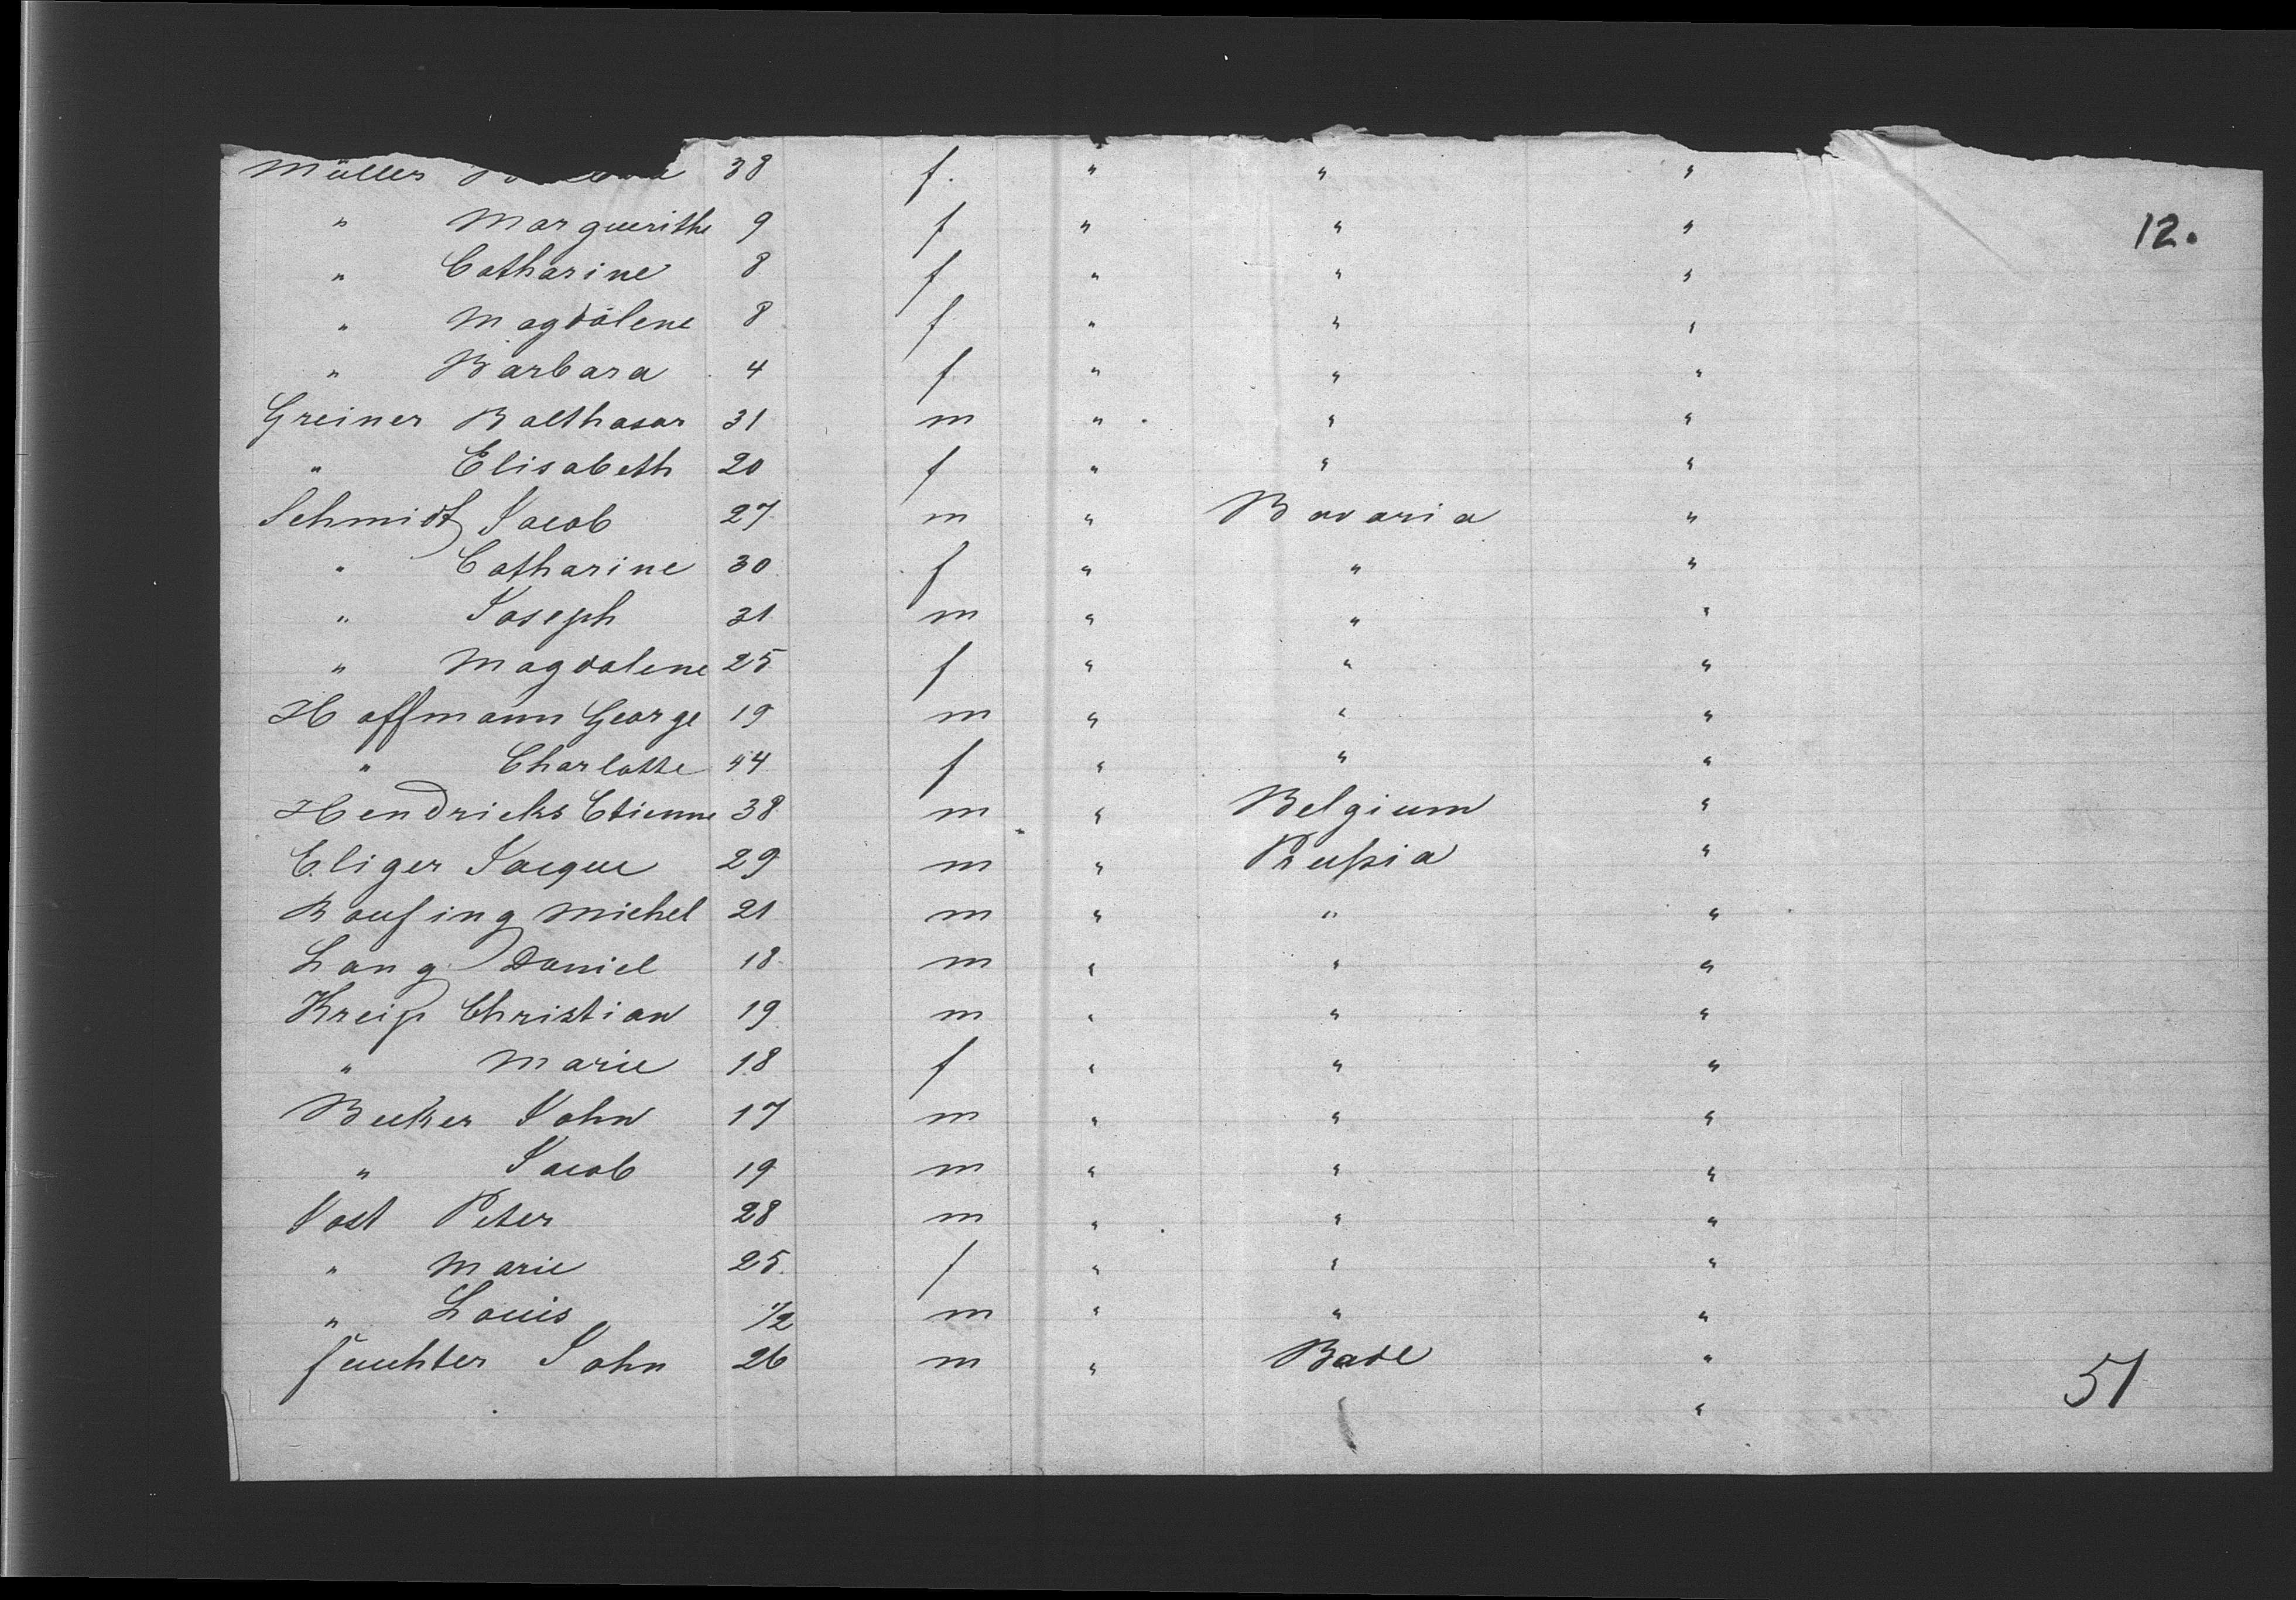 Müller 38 f. " " "
" Marguerithe 9 f " " "
12.
" Catharine 8 f " " "
" Magdalene 8 f " " "
" Barbara 4 f " " "
Greiner Balthasar 31 m " " "
" Elisabeth 20 f " " "
Schmidt Jacob 27 m " Bavaria "
" Catharine 30 f " " "
" Joseph 31 m " " "
" Magdalene 25 f " " "
Hoffmann George 19 m " " "
" Charlotte 44 f " " "
Hendricks Etienne 38 m " Belgium "
Eliger Jacque 29 m " Prußia "
Michel 21 m " " "
Lang Daniel 18 m " " "
Kreip Christian 19 m " " "
" Marie 18 f " " "
Becker John 17 m " " "
" Jacob 19 m " " "
Jost Peter 28 m " " "
" Marie 25 f " " "
" Louis 1/2 m " " "
John 26 m " Bade "
51
"